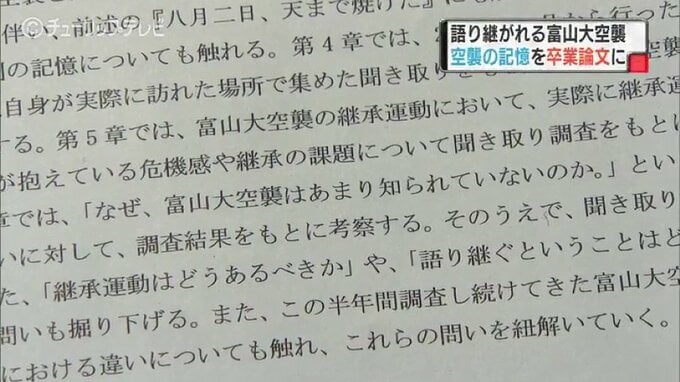 ©チューリップテレビ
語り継がれる富山大空襲
空襲の記憶を卒業論文に
伴い、前述の『八月二日、天まで焼けた』に
の記憶についても触れる。第4章では、
自身が実際に訪れた場所で集めた聞き取りを
する。第5章では、富山大空襲の継承運動において、実際に継承運
が抱えている危機感や継承の課題について聞き取り調査をもとに
章では、「なぜ、富山大空襲はあまり知られていないのか。」とい
いに対して、調査結果をもとに考察する。そのうえで、聞き取り
た、「継承運動はどうあるべきか」や、「語り継ぐということはど
問いも掘り下げる。また、この半年間調査し続けてきた富山大空
における違いについても触れ、これらの問いを紐解いていく。